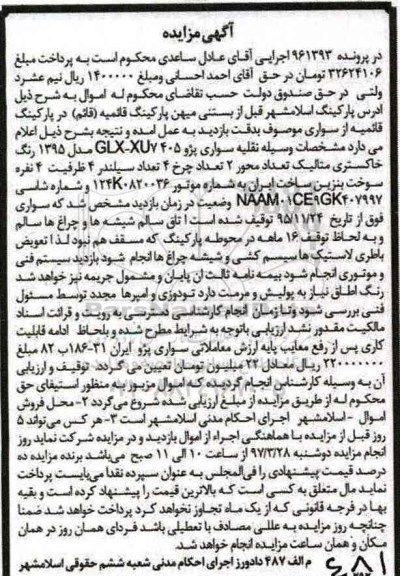 آگهی مزایده
در پرونده ۹۶۱۳۹۳ اجرایی آقای عادل ساعدی محکوم است به پرداخت مبلغ
۳۲۶۲۴۱۰۶ تومان در حق آقای احمد احسانی ومبلغ ۱۴۰۰۰۰۰ ریال نیم عشرد
ولتی در حق صندوق دولت حسب تقاضای محکوم له اموال به شرح ذیل
ادرس پارکینگ اسلامشهر قبل از بستنی میهن پارکینگ قائمیه (قائم) در پارکینگ
قائمیه از سواری موصوف بدقت بازدید به عمل امده و نتیجه بشرح ذیل اعلام
می دارد مشخصات وسیله نقلیه سواری پژو ۴۰۵ GLX-XU۷ مدل ۱۳۹۵ رنگ
خاکستری متالیک تعداد محور ۲ تعداد چرخ ۴ تعداد سیلندر ۴ ظرفیت ۴ نفره
سوخت بنزین ساخت ایران به شماره موتور ۱۲۴K۰۸۲۰۰۳۶ و شماره شاسی
NAAM۰۱CE۹GK۴۰۷۹۹۷ وضعیت در زمان بازدید مشخص شد که سواری
فوق از تاریخ ۹۵/۱۱/۲۴ توقیف شده است ا تاق سالم شیشه ها و چراغ ها سالم
و به لحاظ توقف ۱۶ ماهه در محوطه پارکینگ که مسقف هم نبود لذ ا تعویض
باطری لاستیک ها سیسم کشی و شیشه چراغ ها انجام شود بازدید سیستم فنی
و موتوری انجام شود بیمه نامه ثالث ان پایان و مشمول جریمه نیز خواهد شد
رنگ اطاق نیاز به پولیش و مرمت دارد تودوزی و امپرها مجدد توسط مسئول
فنی بررسی شود وتا زمان انجام کارشناسی دسترسی به رویت و قرائت اسناد
مالکیت مقدور نشد ارزیابی باتوجه به شرایط مطرح شده و بلحاظ ادامه قابلیت
کاری پس از رفع معایب پایه ارزش معاملاتی سواری پژو ایران ۳۱-۱۸۶ب ۸۲ مبلغ
۲۲۰۰۰۰۰۰۰ ریال معادل ۲۲ میلیون تومان تعیین می گردد توقیف و ارزیابی
آن به وسیله کارشناس انجام گردیده که اموال مزبور به منظور استیفای حق
محکوم له از طریق مزایده از مبلغ ارزیابی شده شروع می گردد ۲- محل فروش
اموال -اسلامشهر اجرای احکام مدنی اسلامشهر است ۳- هر کس می تواند ۵
روز قبل از مزایده با هماهنگی اجراء از اموال بازدید و در مزایده شرکت نماید روز
انجام مزایده دوشنبه ۹۷/۳/۲۸ از ساعت ۱۰ الی ۱۱ صبح می باشد برنده مزایده ده
درصد قیمت پیشنهادی را فی المجلس به عنوان سپرده نقدا می بایست پرداخت
نماید مال متعلق به کسی است که بالاترین قیمت را پیشنهاد کرده است و بقیه
بها در فرجه قانونی که از یک ماه تجاوز نخواهد کرد پرداخت خواهد شد ضمنا
چنانچه روز مزایده به عللی مصادف با تعطیلی باشد فردای همان روز در همان
مکان و همان ساعت مزایده انجام خواهد شد.
م الف ۴۸۷ دادورز اجرای احکام مدنی شعبه ششم حقوقی اسلامشهر